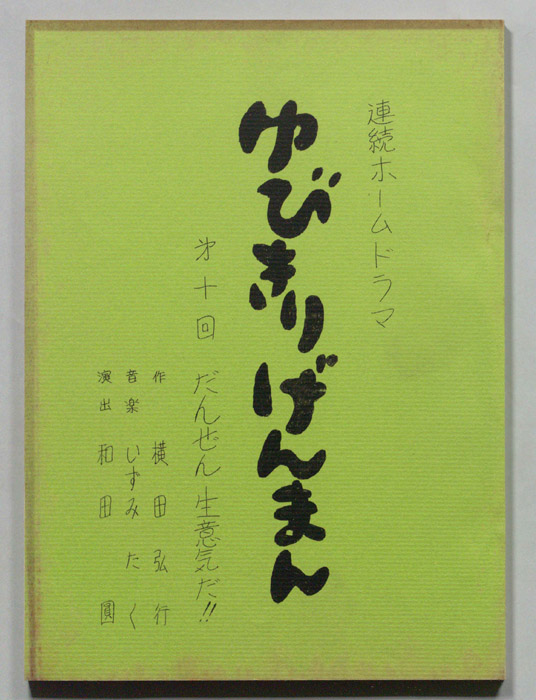 連続ホームドラマ
ゆびきりげんまん
第十回 だんぜん生意気だ!!
作 横田弘行
音楽 いずみたく
演出 和田 圓